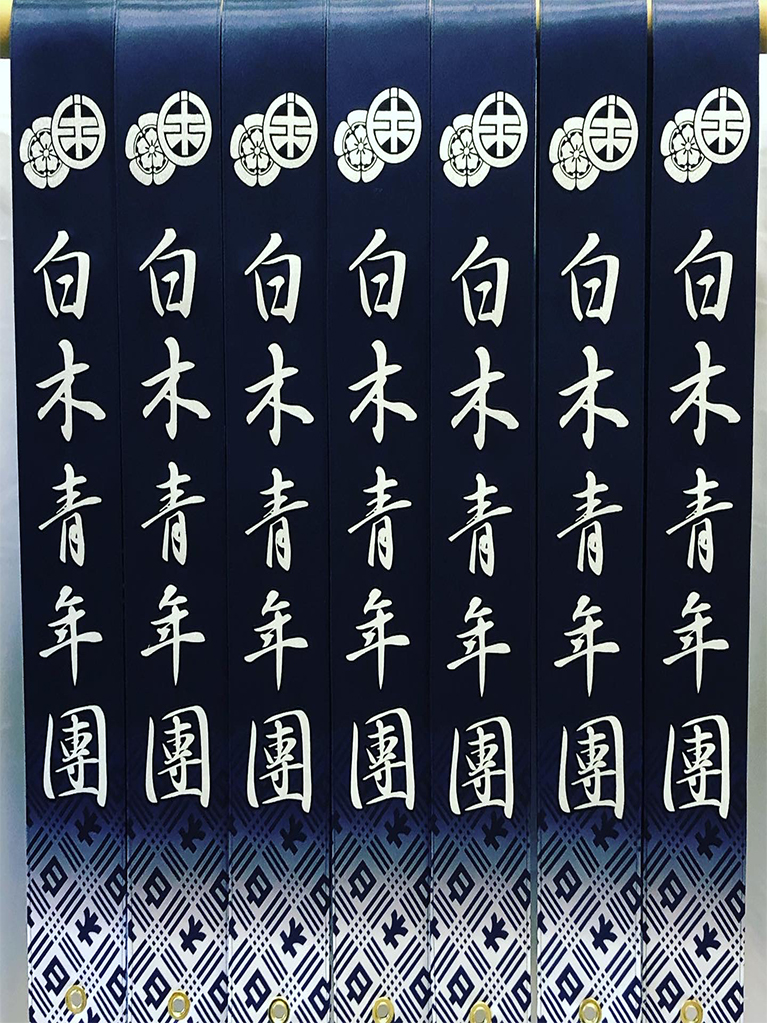 白木青年團
白木青年團
白木青年團
白木青年團
白木青年團
白木青年團
白木青年團